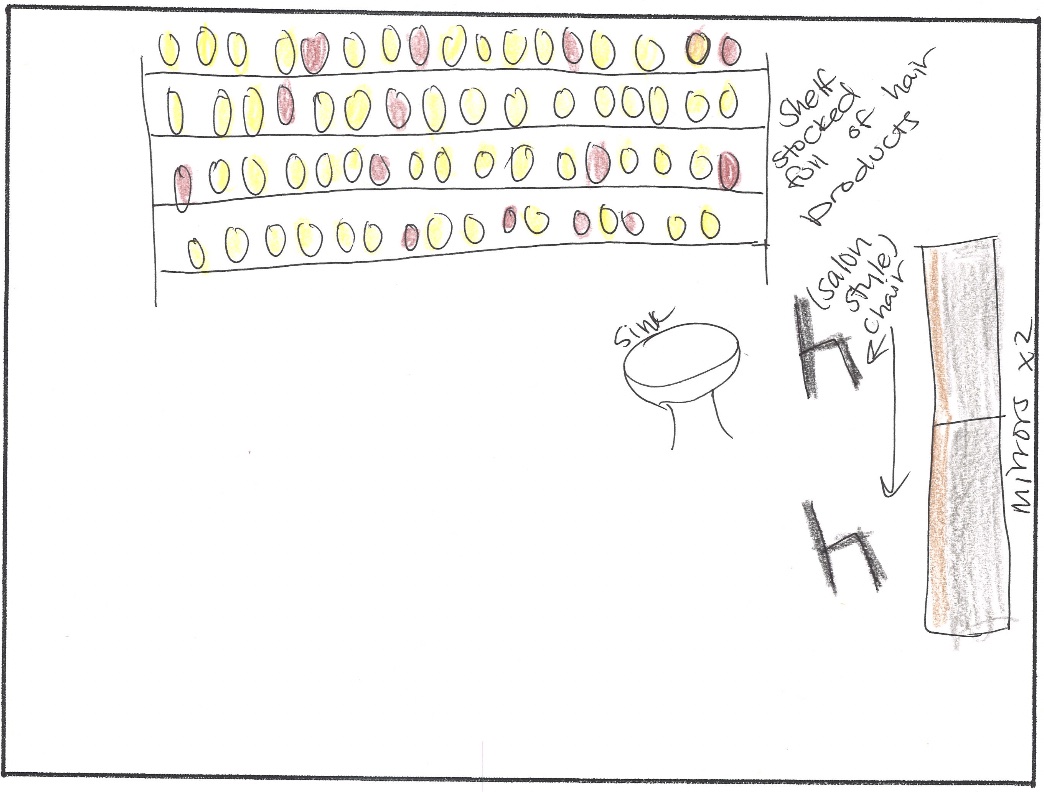 Shelf
stocked
full of hair
products
(salon
style)
chair
sink
mirrors x2